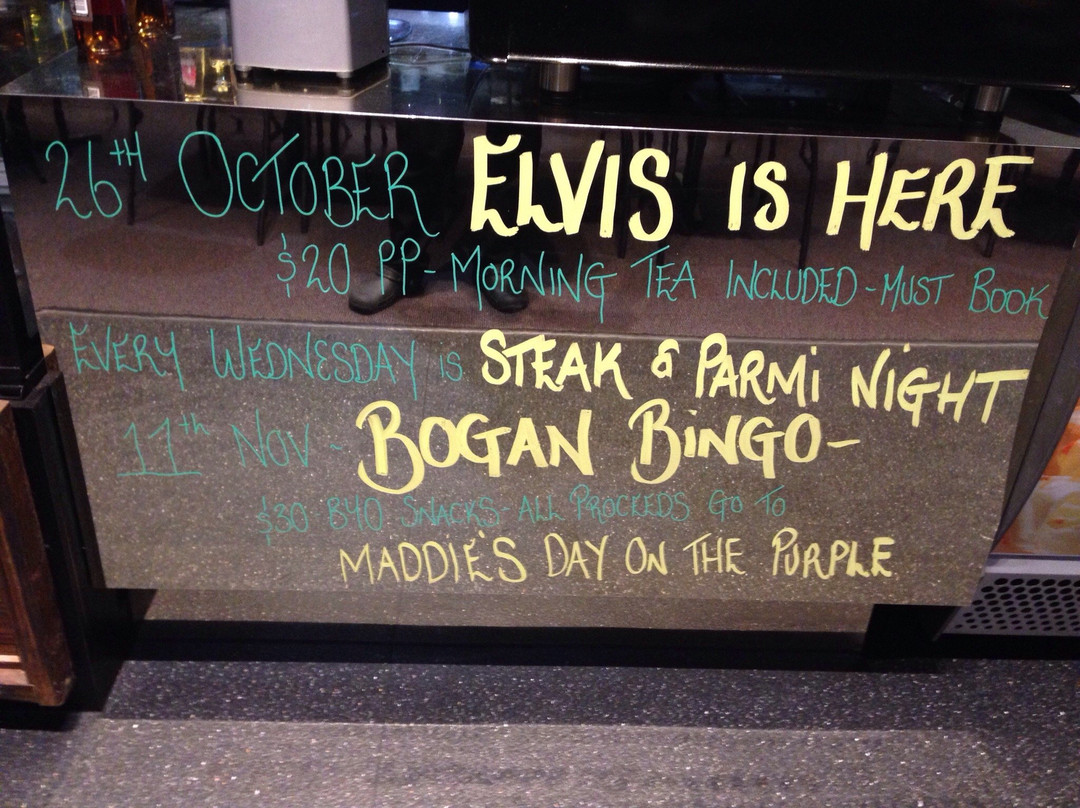 26TH OCTOBER ELVIS IS HERE
$20 PP - MORNING TEA INCLUDED - MUST BOOK
EVERY WEDNESDAY IS STEAK & PARMi NiGHT
11th NOV - BOGAN BiNGO -
$30 BYO SNACKS - ALL PROCEEDS GO TO
MADDiE'S DAY ON THE PURPLE